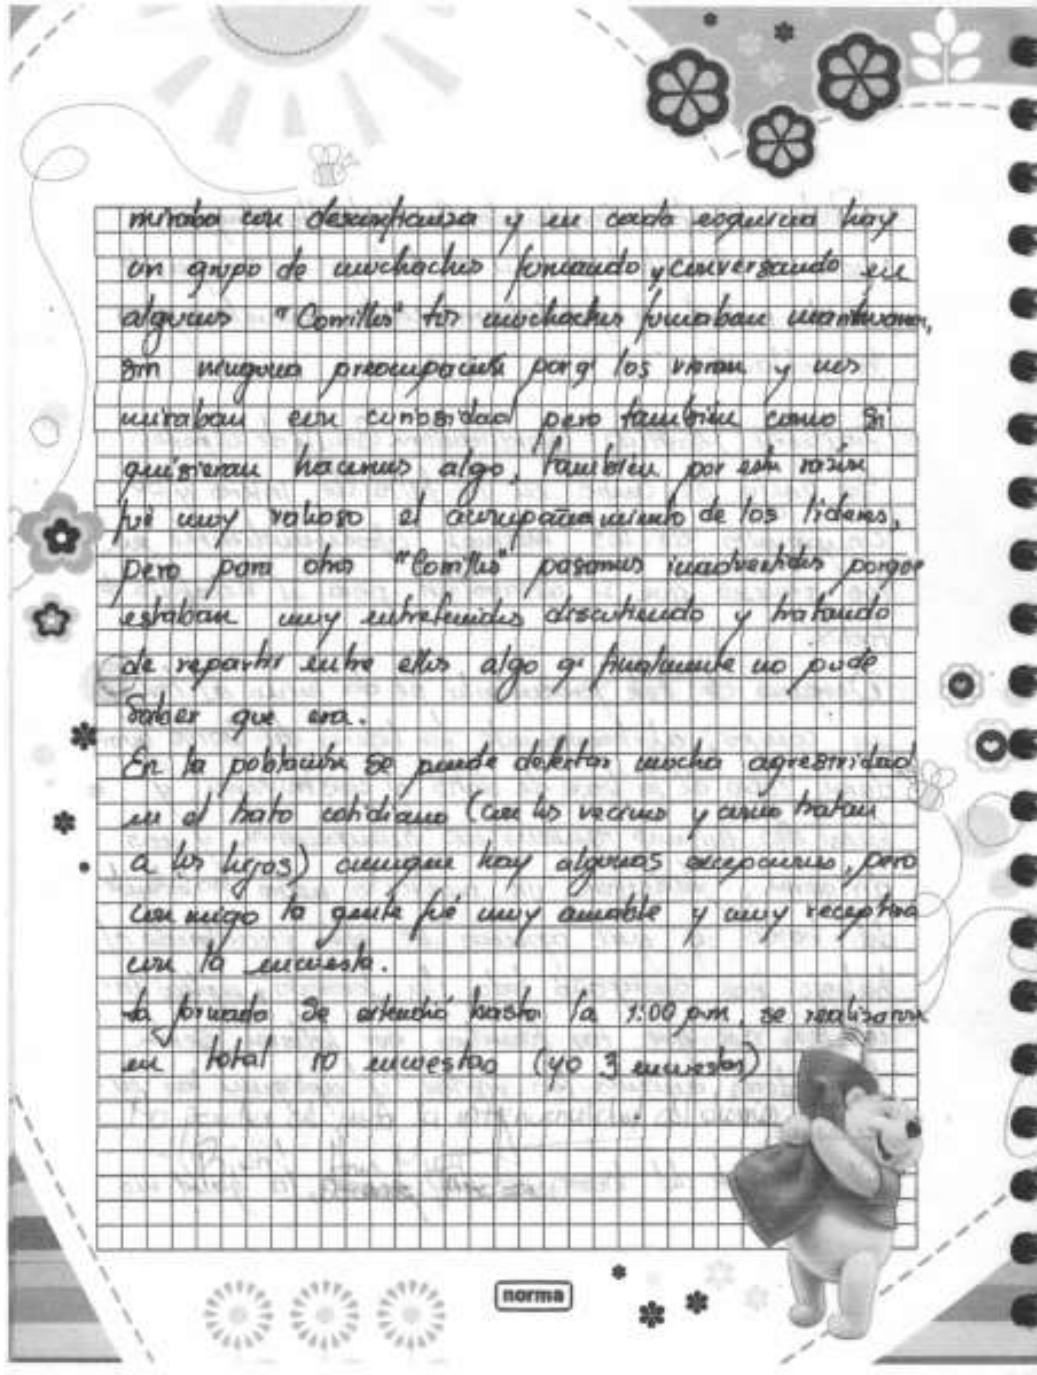 miraba con desconfianza y en cada esquina hay
un grupo de muchachos fumando y conversando en
algunos "Corrillos" los muchachos fumaban marihuana,
sin ninguna preocupación porq' los vieran y nos
miraban con curiosidad pero también como si
quisieran hacernos algo, también por esta razón
fué muy valioso el acompañamiento de los líderes,
pero para otros "Corrillos" pasamos inadvertidos porque
estaban muy entretenidos discutiendo y tratando
de repartir entre ellos algo q' finalmente no pude
saber que era.
En la población se puede detectar mucha agresividad
en el trato cotidiano (con los vecinos y como tratan
a los hijos) aunque hay algunas excepciones, pero
con migo la gente fué muy amable y muy receptiva
con la encuesta.
La jornada se extendió hasta la 1:00 p.m, se realizaron
en total 10 encuestas (yo 3 encuestas)
norma